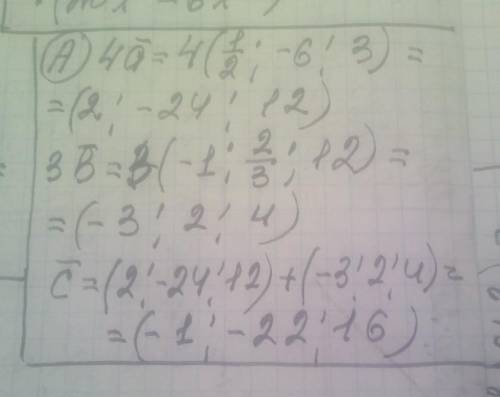 А) 4ā = 4(1/2; -6; 3) =
= (2; -24; 12)
3b̄ = 3(-1; 2/3; 12) =
= (-3; 2; 4)
c̄ = (2; -24; 12) + (-3; 2; 4) =
= (-1; -22; 16)